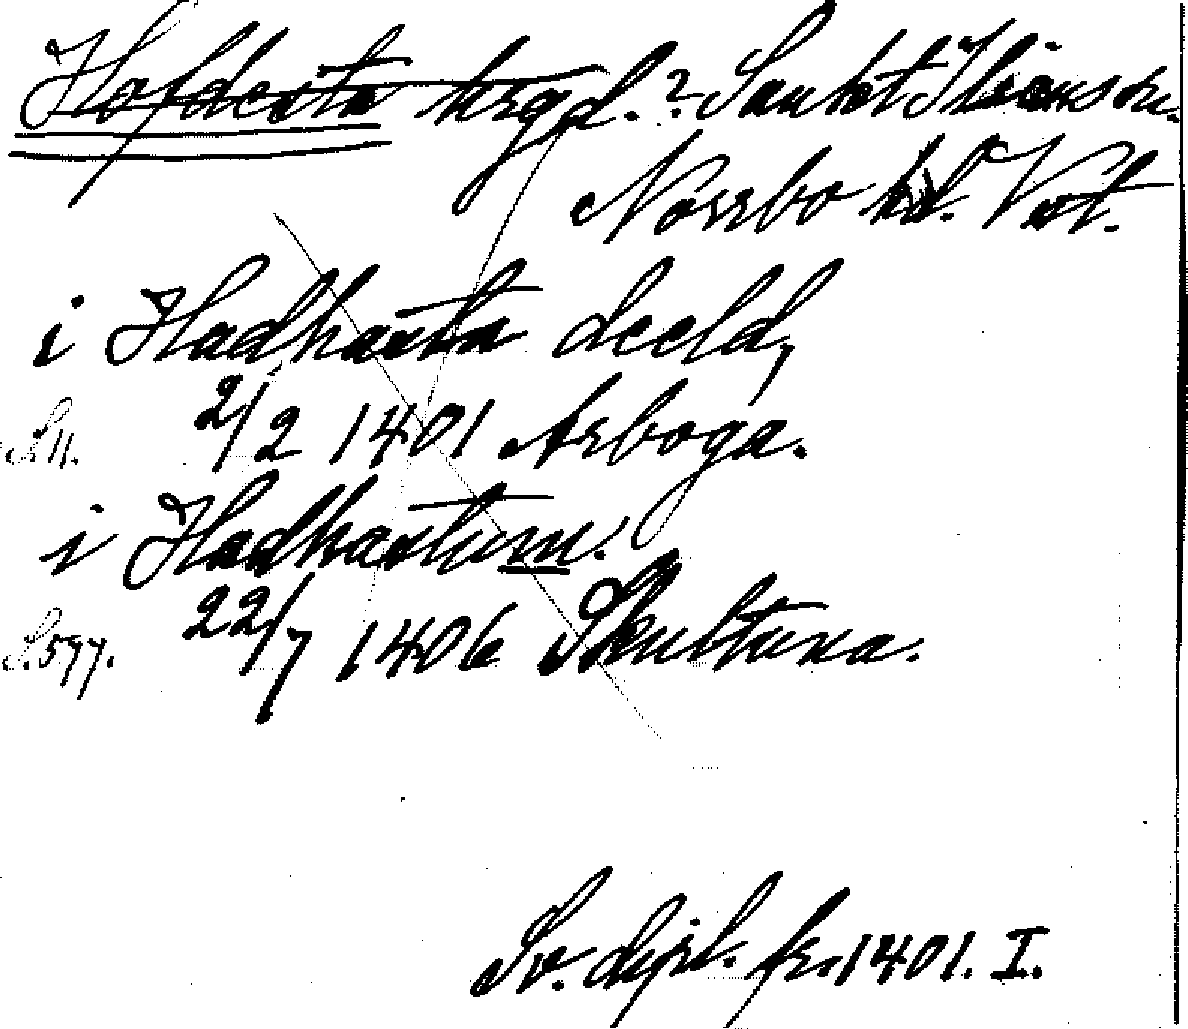 Hofdesta hrgd.? Sankt Ilians sn.
Norrbo hd. Vst.
i Hadhasta deeld,
S. 11. 2/2 1401 Arboga.
i Hadhastum.
S. 577. 22/7 1406 Skultuna.
Sv. dipl. fr. 1401. I.